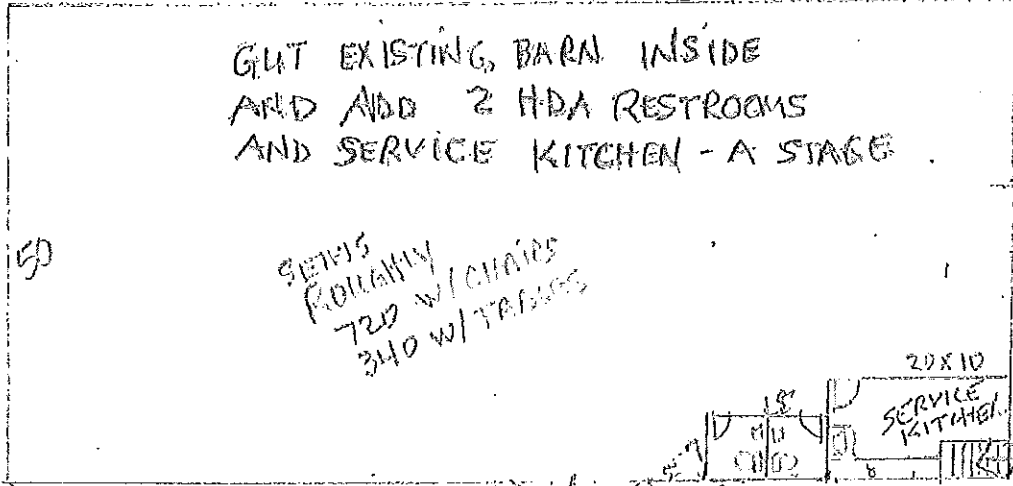 GUT EXISTING BARN INSIDE
AND ADD 2 HDA RESTROOMS
AND SERVICE KITCHEN - A STAGE.
50
SEATS
ROUGHLY
720 W/ CHAIRS
340 W/ TABLES
20X10
SERVICE
KITCHEN